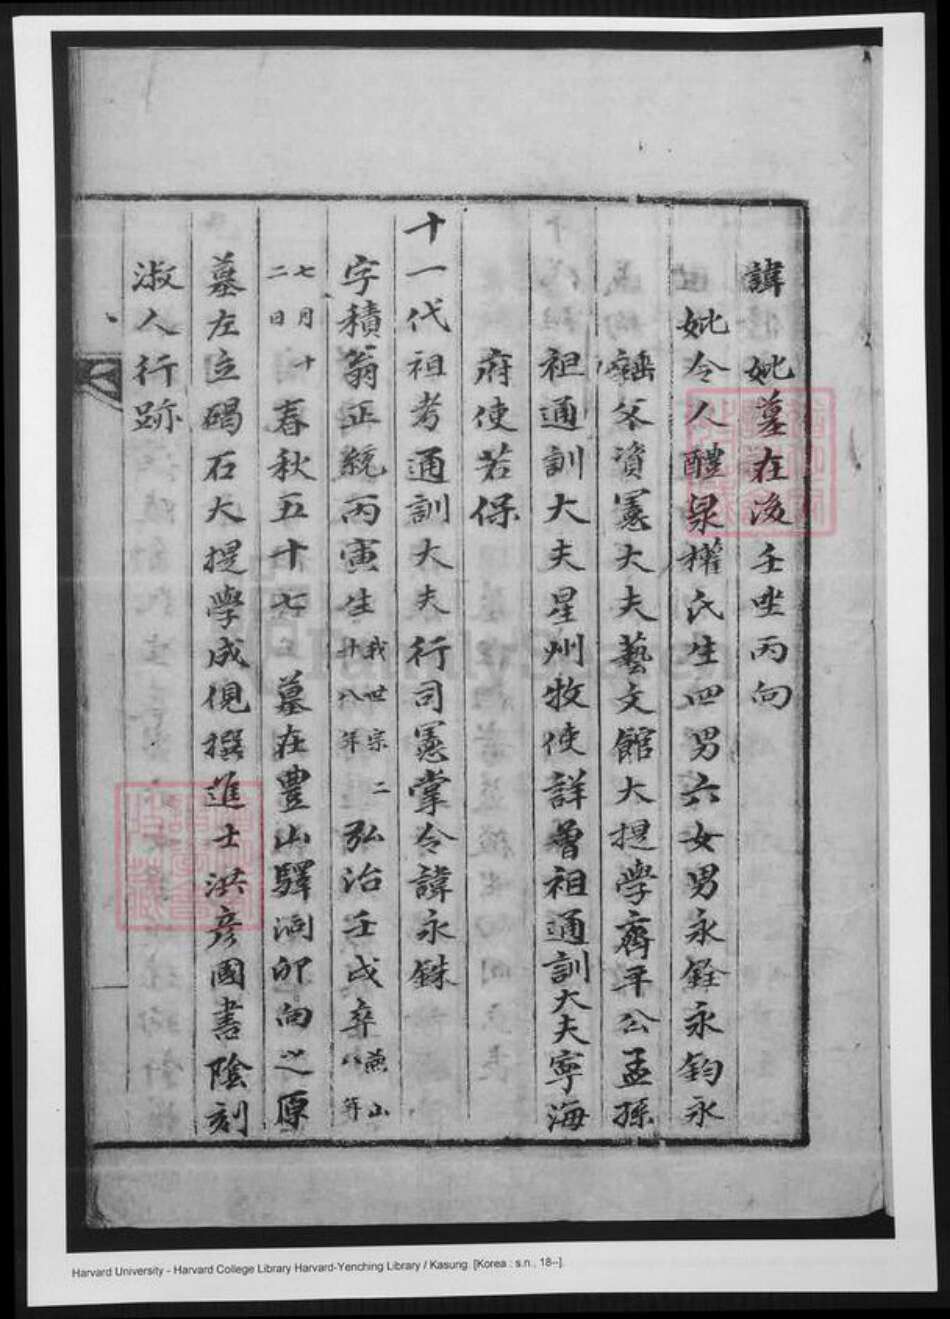 諱妣墓在後壬坐丙向
妣令人醴泉權氏生四男六女男永銓永鈞永
父資憲大夫藝文館大提學齊平公孟孫
祖通訓大夫星州牧使詳曾祖通訓大夫寧海
府使若保
十一代祖考通訓大夫行司憲掌令諱永銖
字積翁正統丙寅生我世宗二十八年弘治壬戌卒燕山八年
七月十二日春秋五十七 墓在豊山驛洞卯向之原
墓左立碣石大提學成俔撰進士洪彦國書陰刻
淑人行跡
Harvard University - Harvard College Library Harvard-Yenching Library / Kasung. [Korea : s.n., 18--].